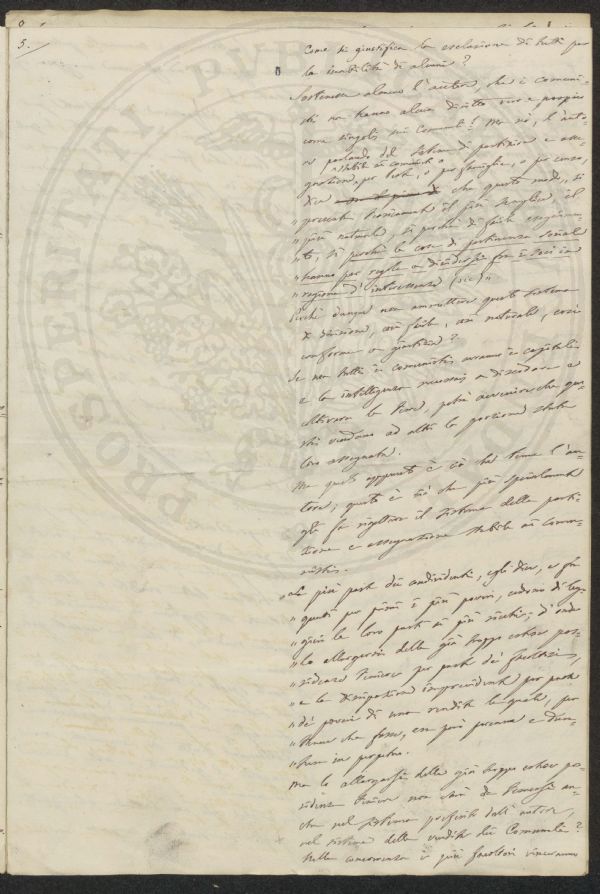 5./
Come si giustifica la esclusione di tutti per
la inabilità di alcuni?
Sosteneva almeno l'autore, che i comuni-
sti non hanno alcun diritto vero e proprio
come singoli sui Comunali? Ma no, l'auto-
re parlando del sistema di partizione e asse-
stabile ai comunisti o
gnazione, per teste, o per famiglie, o per censo,
dice che questo modo, si
" presenta bensì il più semplice il
" più naturale, sì perché di facile eseguimen-
" to, sì perché le cose di pertinenza sociale
" hanno per regola a dividersi fra i soci in
" ragione d'interessenza (sic) "
Perchè dunque non ammettere questo sistema
di divisione, così facile, così naturale, così
conforme a giustizia?
Se non tutti i comunisti avranno i capitali
e la intelligenza necessari a dissodare e
coltivare le terre, potrà avvenire che que-
sti vendano ad altri la porzione stata
loro assegnata.
Ma questo appunto è ciò che teme l'au-
tore; questo è ciò che più specialmente
gli fa rigettare il sistema della parti-
zione e assegnazione stabile ai comu-
nisti.
" La più parte dei condividenti, egli dice, e fra
" questi per primi i più poveri, cedono di leg-
" gieri le loro parti ai più ricchi; d'onde
" lo allargarsi delle già troppo estese pos-
" sidenze per parte dei facoltosi,
" e la dissipazione imprevidente per parte
" dei poveri di una rendita la quale, per
" tenue che fosse, era più sicura e
" in perpetuo.
Ma lo allargarsi delle già troppo estese pos-
sidenze non sarà da temersi an-
che nel sistema preferito dall'autore,
nel sistema della vendita dei Comunali?
Nella concorrenza i più facoltosi vinceranno